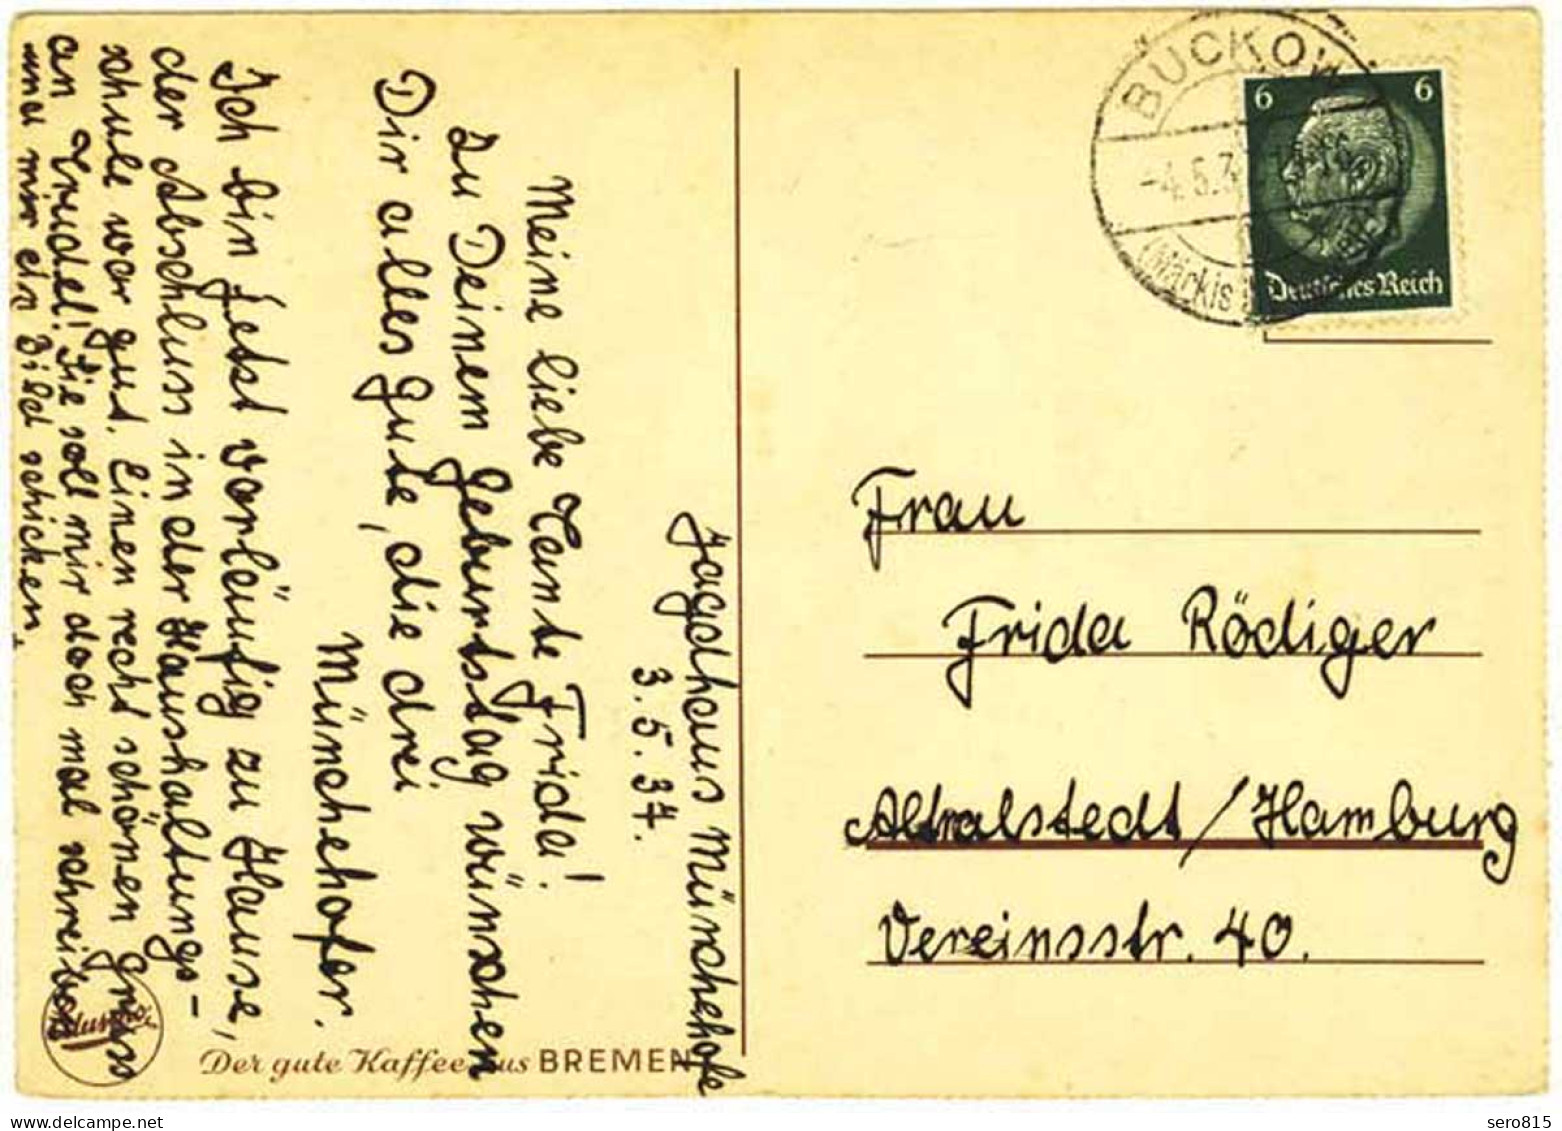 Jagdhaus Münchehofe
3.5.37.
Meine liebe Tante Frida!
Zu Deinem Geburtstag wünschen
Dir alles Gute, die drei
Münchehofer.
Ich bin jetzt vorläufig zu Hause,
der Abschluss in der Haushaltungs-
schule war gut. Einen recht schönen Gruss
an Trudel! Sie soll mir doch mal schreiben
und mir ein Bild schicken.
Der gute Kaffee aus BREMEN
BUCKOW
-4.5.3
(Märkis
6 6
Deutsches Reich
Frau
Frida Rödiger
Altralstedt/Hamburg
Vereinsstr. 40.
sero815